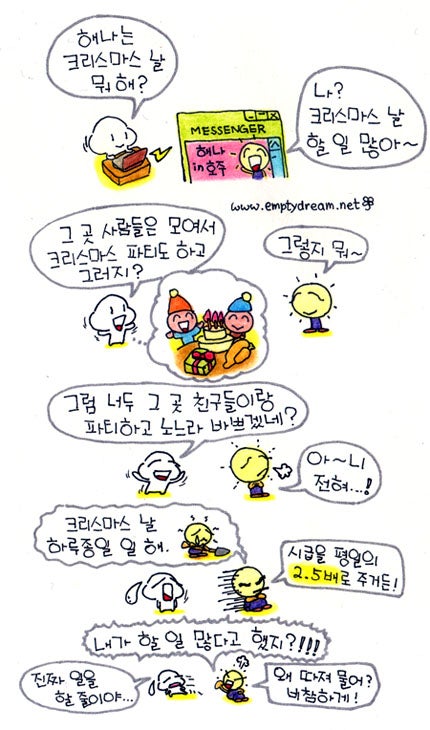 해나는
크리스마스 날
뭐 해?
나?
크리스마스 날
할 일 많아~
MESSENGER
해나
in 호주
www.emptydream.net
그 곳 사람들은 모여서
크리스마스 파티도 하고
그러지?
그렇지 뭐~
그럼 너두 그 곳 친구들이랑
파티하고 노느라 바쁘겠네?
아~니
전혀...!
크리스마스 날
하루종일 일 해.
시급을 평일의
2.5배로 주거든!
내가 할 일 많다고 했지?!!!
진짜 일을
할 줄이야...
왜 따져 물어?
비참하게!